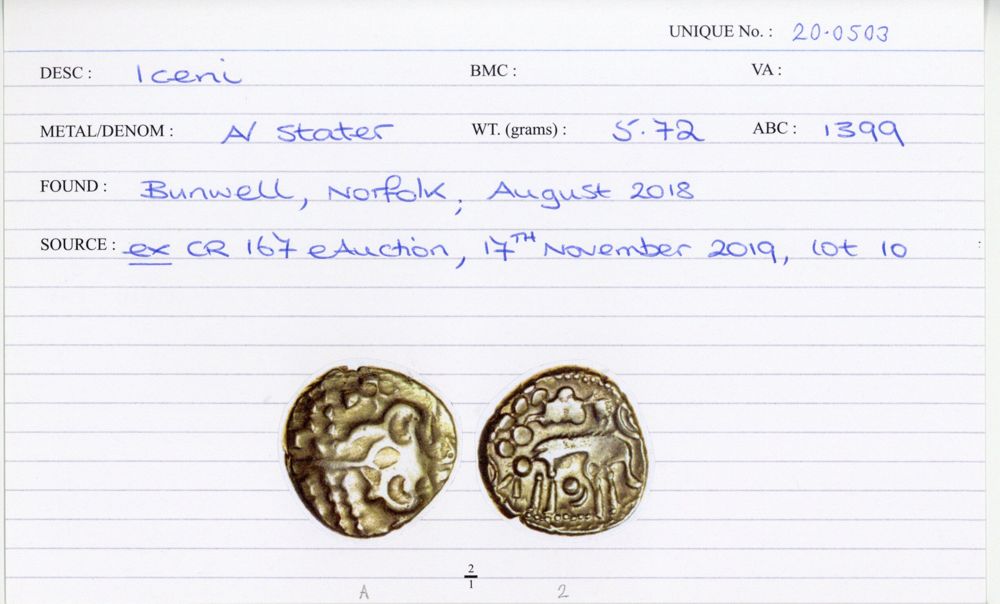 UNIQUE No. : 20.0503
DESC : Iceni BMC : VA :
METAL/DENOM : AV Stater WT. (grams) : 5.72 ABC : 1399
FOUND : Bunwell, Norfolk, August 2018
SOURCE : ex CR 167 eAuction, 17TH November 2019, lot 10
2
1
A 2